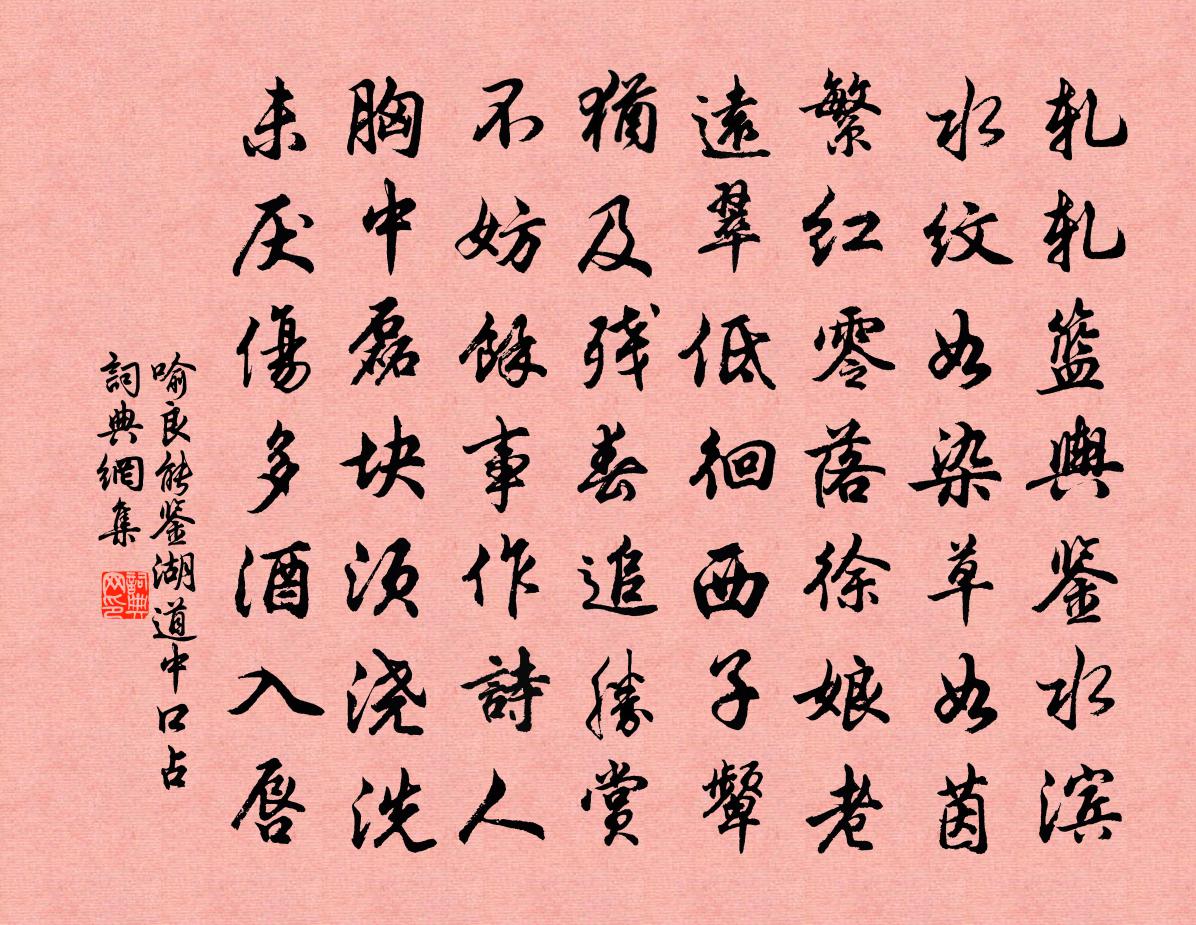 轧轧篮舆鉴水滨
水纹如染草如茵
繁红零落徐娘老
遠翠低徊西子颦
猶及残春追勝赏
不妨餘事作詩人
胸中磊块须浇洗
未厌傷多酒入唇
喻良能鉴湖道中口占
詞典網集
詞典网印